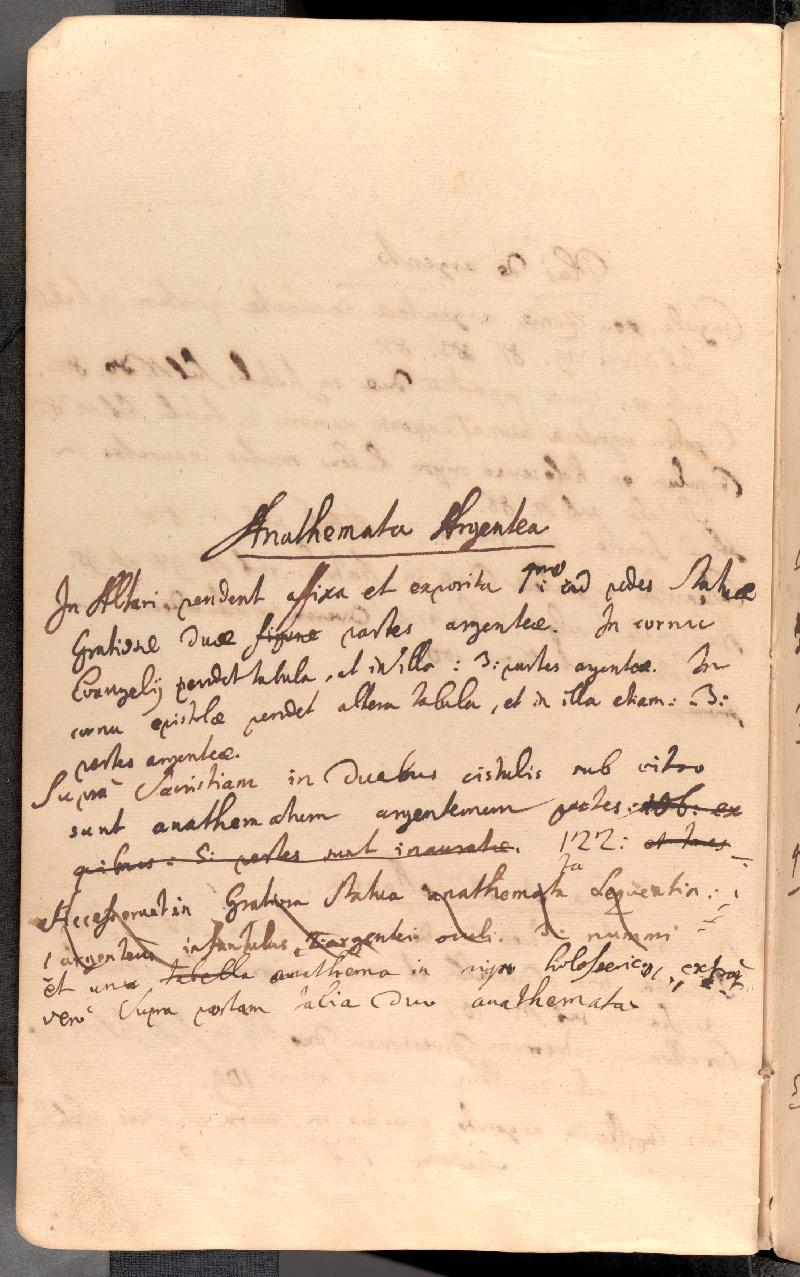 Anathemata Argentea
In Altari pendent affixa et exposita 1mo: ad pedes Statuæ
Gratiosæ duæ figuræ partes argenteæ. In cornu
Evangelij pendet tabula, et in illa : 3: partes argenteæ. In
cornu epistolæ pendet altera tabula, et in illa etiam : 3:
partes argenteæ.
Supra Sacristiam in duabus cistulis sub vitro
sunt anathematum argenteorum partes : 106: ex
quibus : 5: partes sunt inauratæ. 122: et
Accesserunt in Gratiosa Statua anathemata Sequentia :
1 argenteus infantulus, 2 argentei oculi. 3: nummi
et una tabella anathema in nigro holoserico,
vero Supra portam talia duo anathemata